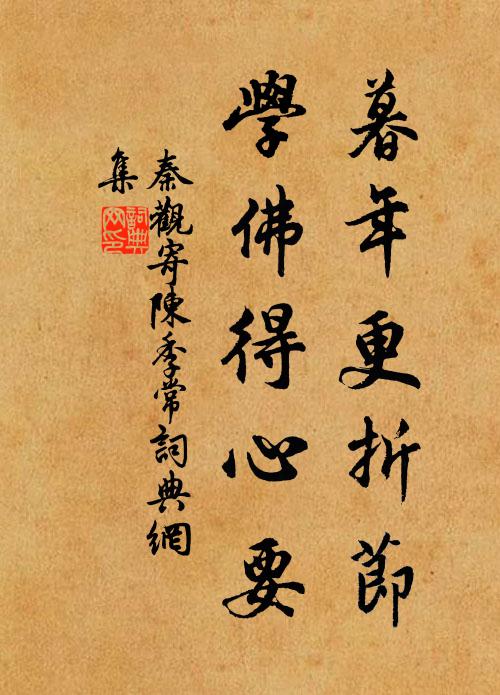 暮年更折節
學佛得心要
秦觀寄陳季常詞典網
集
詞典
网印